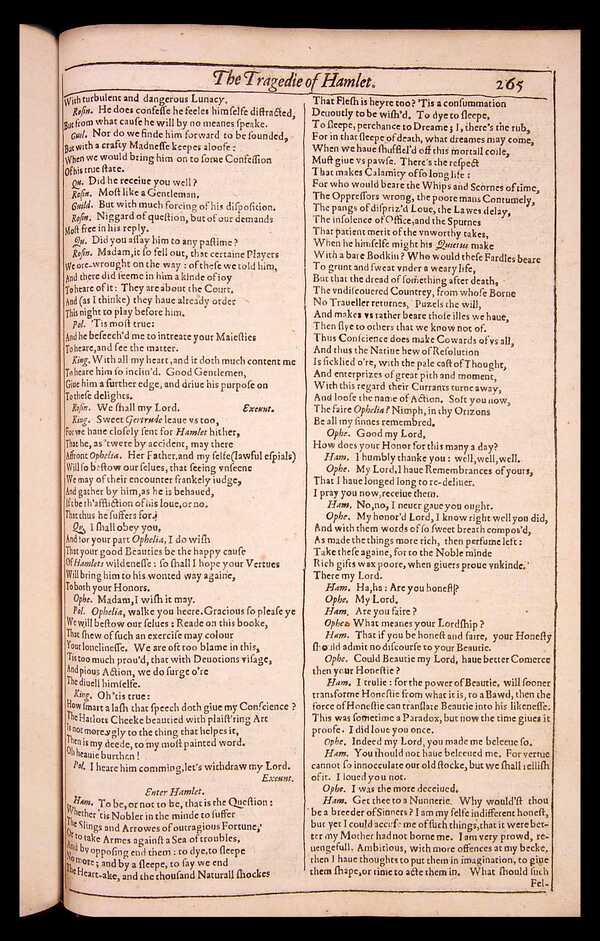 The Tragedie of Hamlet. 265
With turbulent and dangerous Lunacy.
Rosin. He does confesse he feeles himselfe distracted,
But from what cause he will by no meanes speake.
Guil. Nor do we finde him forward to be sounded,
But with a crafty Madnesse keepes aloofe:
When we would bring him on to some Confession
Of his true state.
Qu. Did he receiue you well?
Rosin. Most like a Gentleman.
Guild. But with much forcing of his disposition.
Rosin. Niggard of question, but of our demands
Most free in his reply.
Qu. Did you assay him to any pastime?
Rosin. Madam, it so fell out, that certaine Players
We ore-wrought on the way: of these we told him,
And there did seeme in him a kinde of ioy
To heare of it: They are about the Court,
And (as I thinke) they haue already order
This night to play before him.
Pol. 'Tis most true:
And he beseech'd me to intreate your Maiesties
To heare, and see the matter.
King. With all my heart, and it doth much content me
To heare him so inclin'd. Good Gentlemen,
Giue him a further edge, and driue his purpose on
To these delights.
Rosin. We shall my Lord. Exeunt.
King. Sweet Gertrude leaue vs too,
For we haue closely sent for Hamlet hither,
That he, as 'twere by accident, may there
Affront Ophelia. Her Father, and my selfe (lawful espials)
Will so bestow our selues, that seeing vnseene
We may of their encounter frankely iudge,
And gather by him, as he is behaued,
If't be th'affliction of his loue, or no.
That thus he suffers for.
Qu. I shall obey you,
And for your part Ophelia, I do wish
That your good Beauties be the happy cause
Of Hamlets wildenesse: so shall I hope your Vertues
Will bring him to his wonted way againe,
To both your Honors.
Ophe. Madam, I wish it may.
Pol. Ophelia, walke you heere. Gracious so please ye
We will bestow our selues: Reade on this booke,
That shew of such an exercise may colour
Your lonelinesse. We are oft too blame in this,
'Tis too much prou'd, that with Deuotions visage,
And pious Action, we do surge o're
The diuell himselfe.
King. Oh 'tis true:
How smart a lash that speech doth giue my Conscience?
The Harlots Cheeke beautied with plaist'ring Art
Is not more vgly to the thing that helpes it,
Then is my deede, to my most painted word.
Oh heauie burthen!
Pol. I heare him comming, let's withdraw my Lord.
Exeunt.
Enter Hamlet.
Ham. To be, or not to be, that is the Question:
Whether 'tis Nobler in the minde to suffer
The Slings and Arrowes of outragious Fortune,
Or to take Armes against a Sea of troubles,
And by opposing end them: to dye, to sleepe
No more; and by a sleepe, to say we end
The Heart-ake, and the thousand Naturall shockes
That Flesh is heyre too? 'Tis a consummation
Deuoutly to be wish'd. To dye to sleepe,
To sleepe, perchance to Dreame; I, there's the rub,
For in that sleepe of death, what dreames may come,
When we haue shuffel'd off this mortall coile,
Must giue vs pawse. There's the respect
That makes Calamity of so long life:
For who would beare the Whips and Scornes of time,
The Oppressors wrong, the poore mans Contumely,
The pangs of dispriz'd Loue, the Lawes delay,
The insolence of Office, and the Spurnes
That patient merit of the vnworthy takes,
When he himselfe might his Quietus make
With a bare Bodkin? Who would these Fardles beare
To grunt and sweat vnder a weary life,
But that the dread of something after death,
The vndiscouered Countrey, from whose Borne
No Traueller returnes, Puzels the will,
And makes vs rather beare those illes we haue,
Then flye to others that we know not of.
Thus Conscience does make Cowards of vs all,
And thus the Natiue hew of Resolution
Is sicklied o're, with the pale cast of Thought,
And enterprizes of great pith and moment,
With this regard their Currants turne away,
And loose the name of Action. Soft you now,
The faire Ophelia? Nimph, in thy Orizons
Be all my sinnes remembred.
Ophe. Good my Lord,
How does your Honor for this many a day?
Ham. I humbly thanke you: well, well, well.
Ophe. My Lord, I haue Remembrances of yours,
That I haue longed long to re-deliuer.
I pray you now, receiue them.
Ham. No, no, I neuer gaue you ought.
Ophe. My honor'd Lord, I know right well you did,
And with them words of so sweet breath compos'd,
As made the things more rich, then perfume left:
Take these againe, for to the Noble minde
Rich gifts wax poore, when giuers proue vnkinde.
There my Lord.
Ham. Ha, ha: Are you honest?
Ophe. My Lord.
Ham. Are you faire?
Ophe. What meanes your Lordship?
Ham. That if you be honest and faire, your Honesty
should admit no discourse to your Beautie.
Ophe. Could Beautie my Lord, haue better Comerce
then your Honestie?
Ham. I trulie: for the power of Beautie, will sooner
transforme Honestie from what it is, to a Bawd, then the
force of Honestie can translate Beautie into his likenesse.
This was sometime a Paradox, but now the time giues it
proofe. I did loue you once.
Ophe. Indeed my Lord, you made me beleeue so.
Ham. You should not haue beleeued me. For vertue
cannot so innocculate our old stocke, but we shall rellish
of it. I loued you not.
Ophe. I was the more deceiued.
Ham. Get thee to a Nunnerie. Why would'st thou
be a breeder of Sinners? I am my selfe indifferent honest,
but yet I could accuse me of such things, that it were bet-
ter my Mother had not borne me. I am very prowd, re-
uengefull, Ambitious, with more offences at my becke,
then I haue thoughts to put them in imagination, to giue
them shape, or time to acte them in. What should such
Fel-